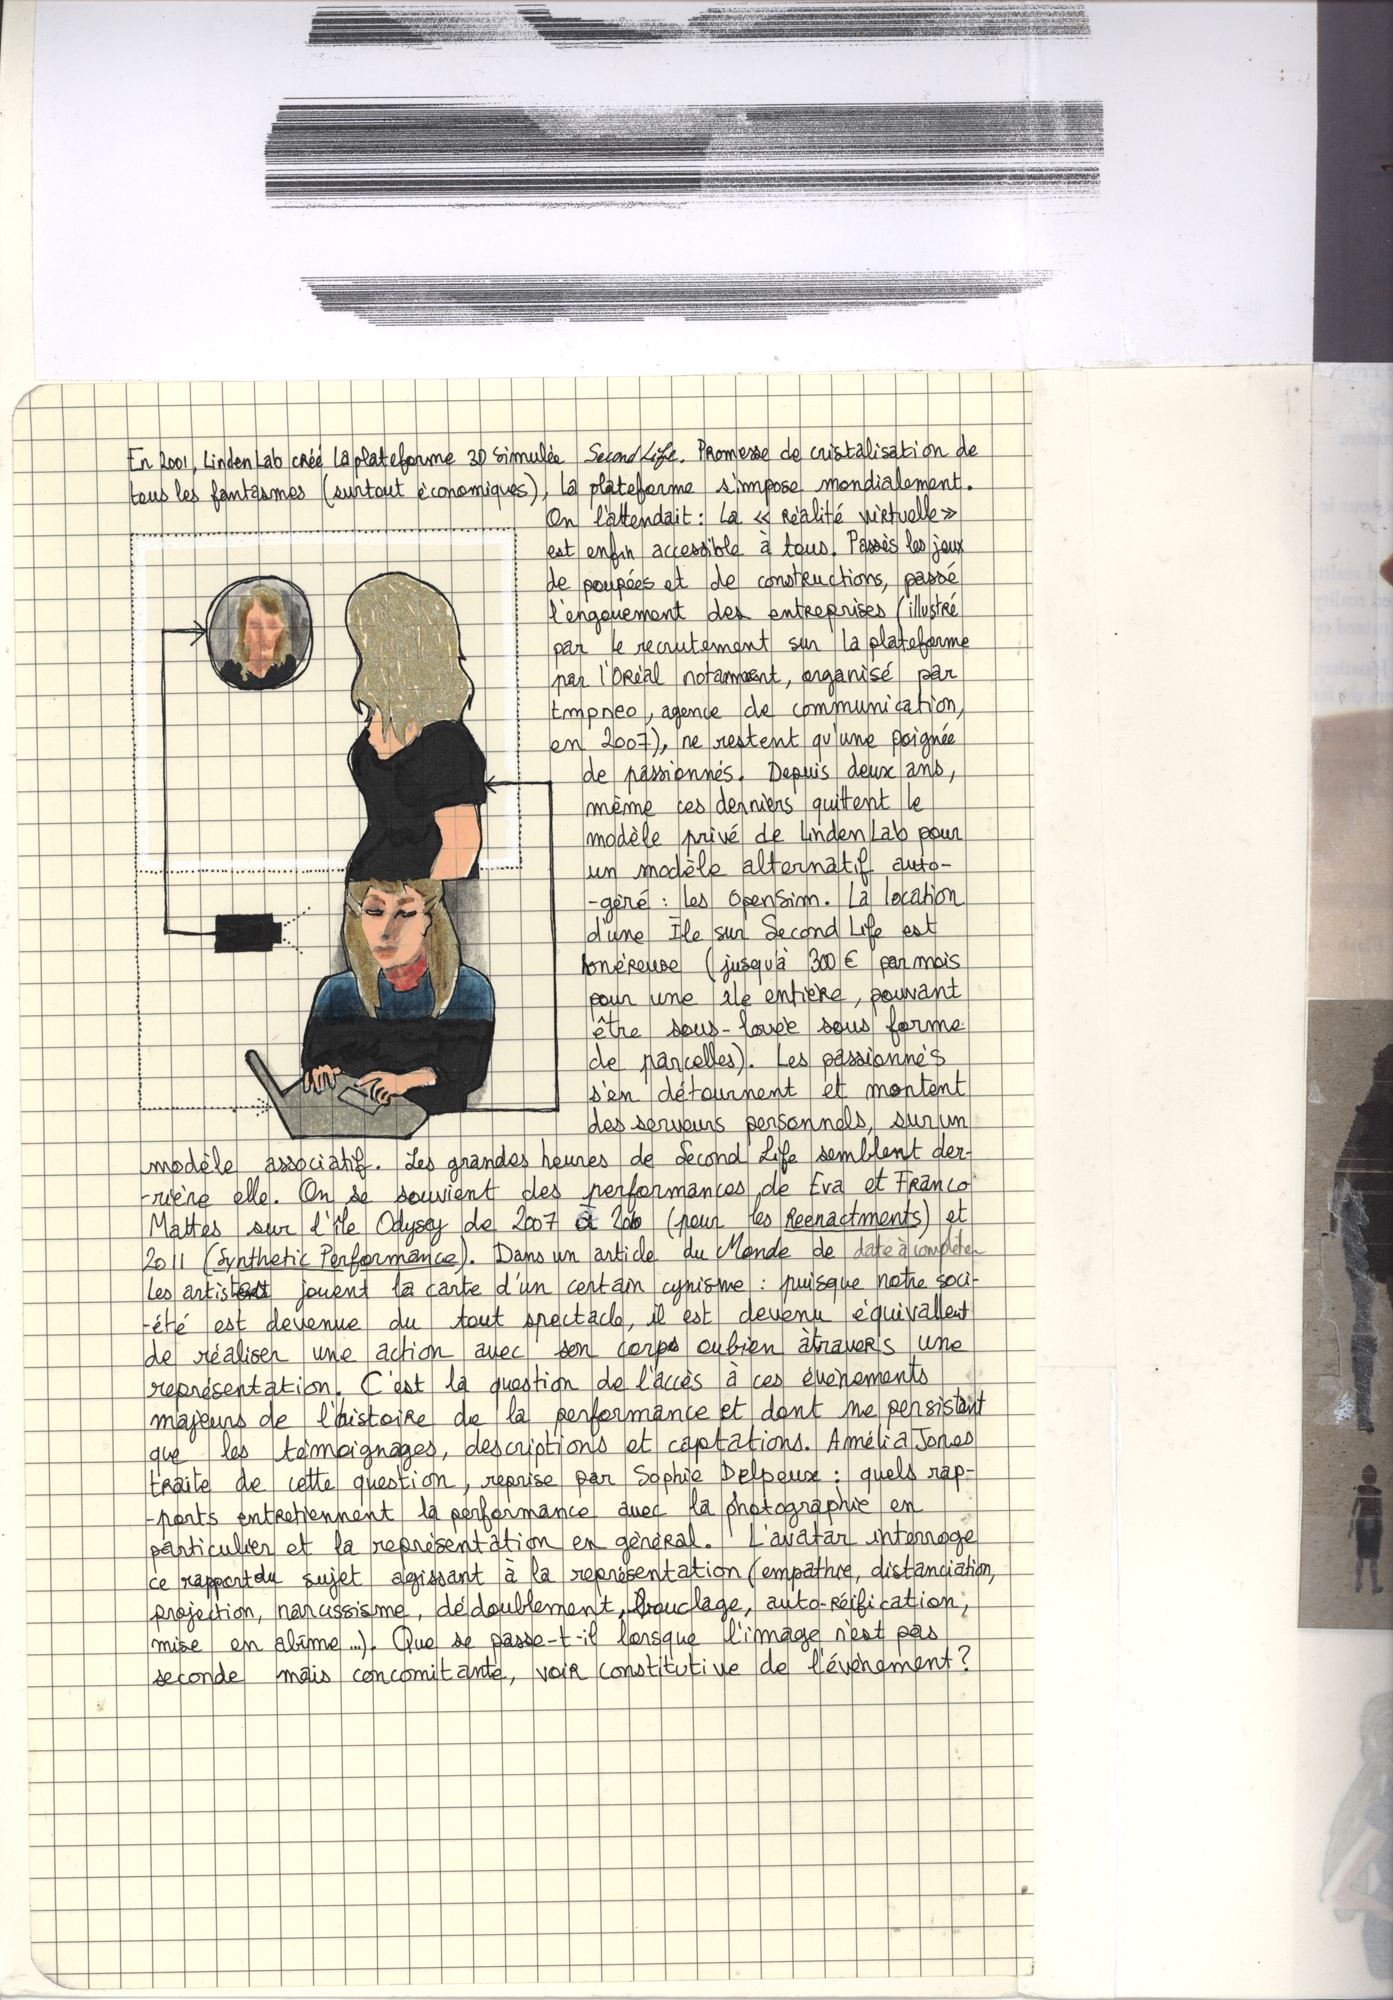 En 2001, Linden Lab créé la plateforme 3D simulée Second Life. Promesse de cristalisation de
tous les fantasmes (surtout économiques), la plateforme s'impose mondialement.
On l'attendait : la « réalité virtuelle »
est enfin accessible à tous. Passés les jeux
de poupées et de constructions, passé
l'engouement des entreprises (illustré
par le recrutement sur la plateforme
par l'Oréal notamment, organisé par
tmpneo, agence de communication,
en 2007), ne restent qu'une poignée
de passionnés. Depuis deux ans,
même ces derniers quittent le
modèle privé de Linden Lab pour
un modèle alternatif auto-
-géré : les OpenSim. La location
d'une Île sur Second Life est
onéreuse (jusqu'à 300 € par mois
pour une île entière, pouvant
être sous-louée sous forme
de parcelles). Les passionnés
s'en détournent et montent
des serveurs personnels, sur un
modèle associatif. Les grandes heures de Second Life semblent der-
-rière elle. On se souvient des performances de Eva et Franco
Mattes sur l'île Odysey de 2007 à (pour les Reenactments) et
2011 (Synthetic Performance). Dans un article du Monde de date à compléter
les artistes jouent la carte d'un certain cynisme : puisque notre soci-
-été est devenue du tout spectacle, il est devenu équivallent
de réaliser une action avec son corps oubien àtravers une
représentation. C'est la question de l'accès à ces évènements
majeurs de l'histoire de la performance et dont ne persistent
que les témoignages, descriptions et captations. Amélia Jones
traite de cette question, reprise par Sophie Delpeux : quels rap-
-ports entretiennent la performance avec la photographie en
particulier et la représentation en général. L'avatar interroge
ce rapport du sujet agissant à la représentation (empathie, distanciation,
projection, narcissisme, dédoublement, bouclage, auto-réification,
mise en abîme ...). Que se passe-t-il lorsque l'image n'est pas
seconde mais concomitante, voir constitutive de l'évènement ?